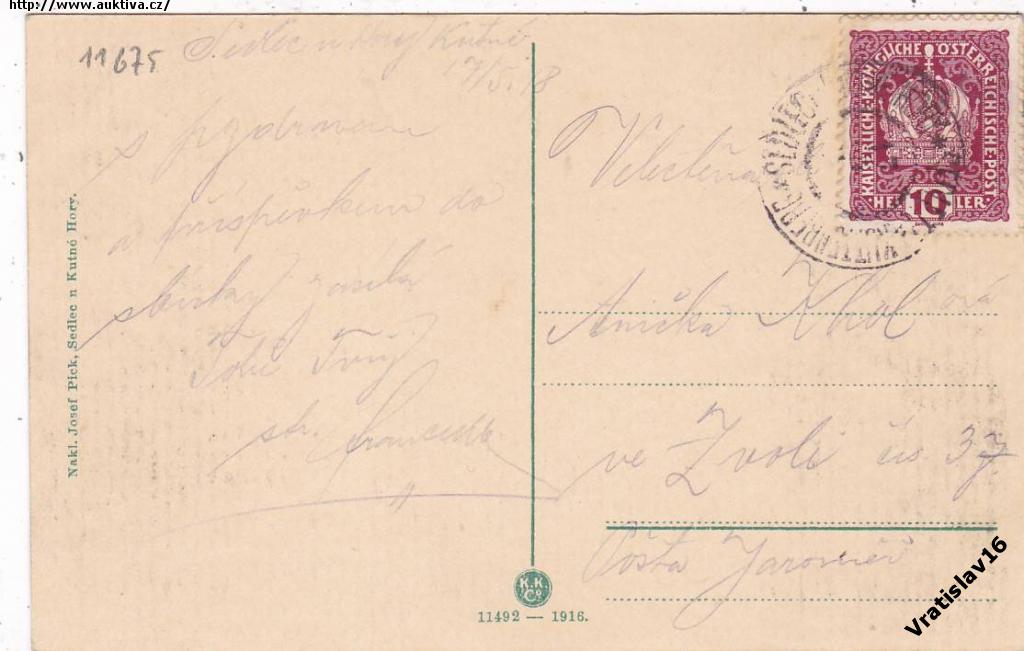 http://www.auktiva.cz/
11675
Sedlec u Hory Kutné
17/5. 18
s pozdravem
a příspěvkem do
sbírky zasílá
Tobě Tvůj
str.
Nakl. Josef Pick, Sedlec u Kutné Hory.
KAISERLICHE·KÖNIGLICHE ÖSTERREICHISCHE·POST
HELLER
10
SEDLEC
Velectěná
Anička Khol
ová
ve Zvoli čís. 37
Pošta Jaroměř
K.K.
Co.
11492 — 1916.
Vratislav16